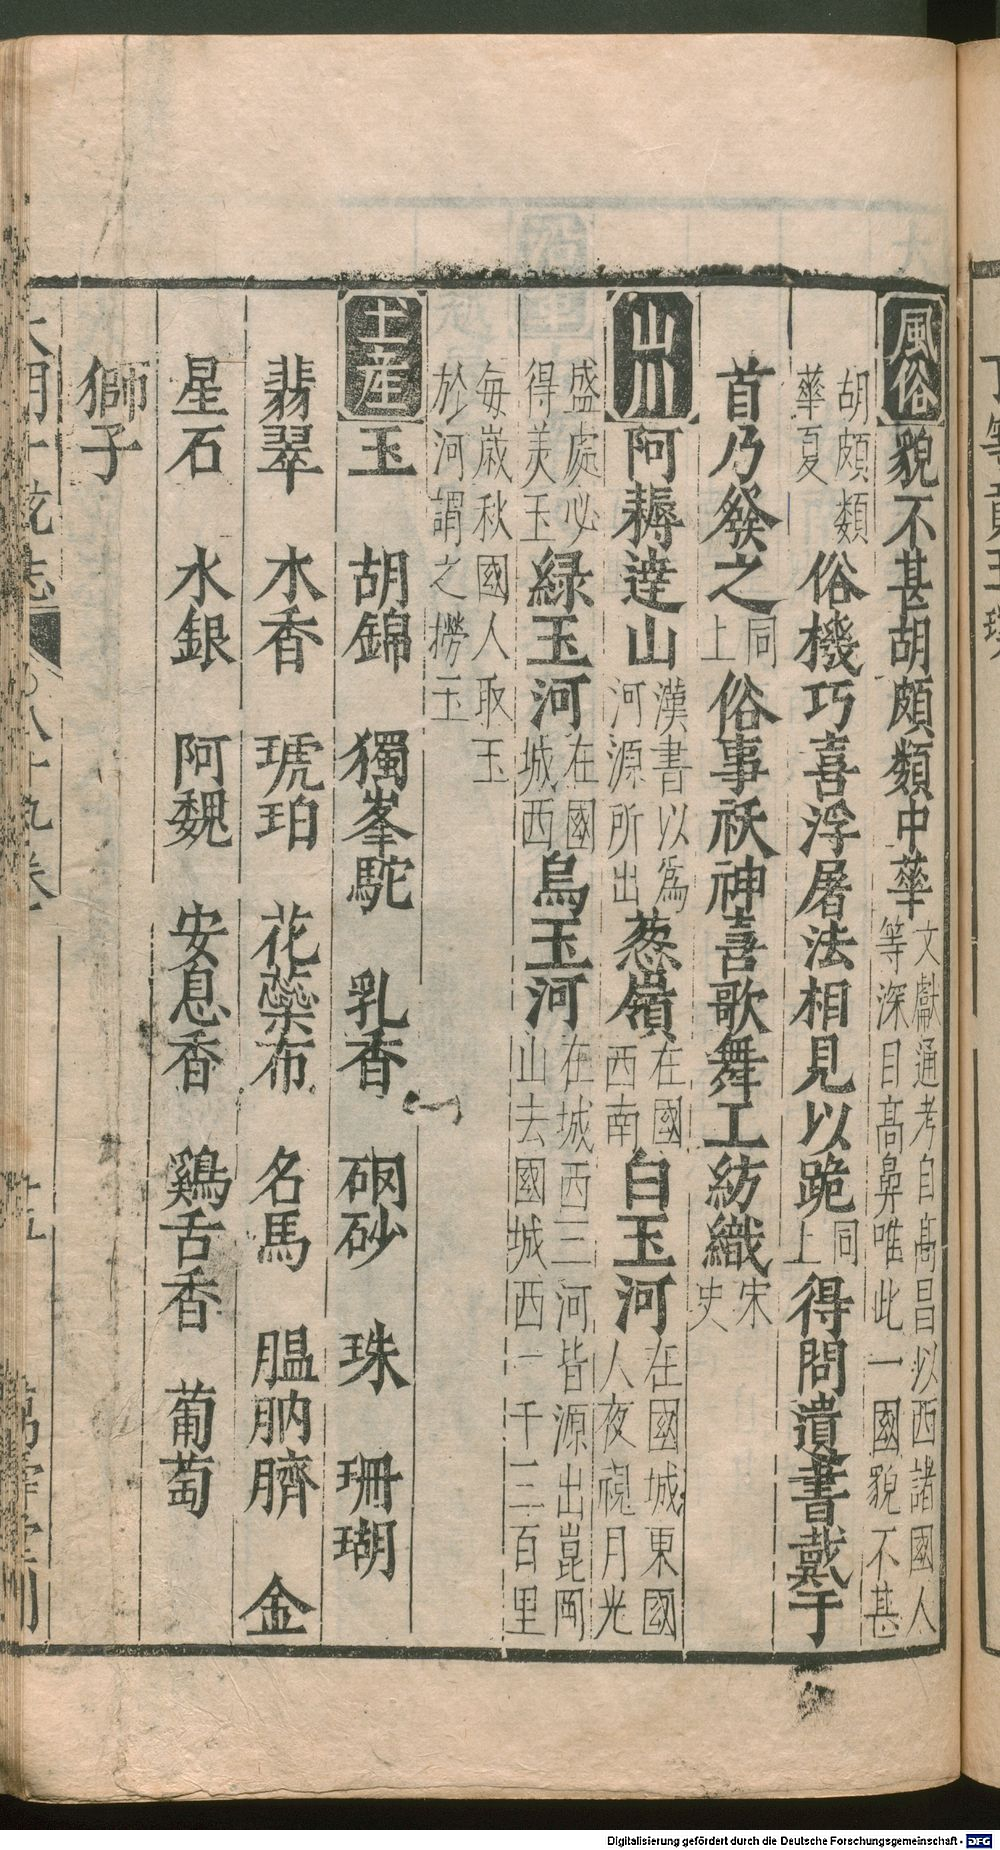 風俗 貌不甚胡頗類中華 文獻通考自高昌以西諸國人等深目高鼻唯此一國貌不甚
胡頗類華夏 俗機巧喜浮屠法相見以跪 同上 得問遺書戴于
首乃發之 同上 俗事祅神喜歌舞工紡織 宋史
山川 阿耨達山 漢書以為河源所出 葱嶺 在國西南 白玉河 在國城東國人夜視月光
盛處必得美玉 綠玉河 在國城西 烏玉河 在城西三河皆源出崑岡山去國城西一千三百里
每歲秋國人取玉於河謂之撈玉
土產 玉 胡錦 獨峯駝 乳香 硇砂 珠 珊瑚
翡翠 木香 琥珀 花蘂布 名馬 膃肭臍 金
星石 水銀 阿魏 安息香 鷄舌香 葡萄
獅子
八十九卷 十五
Digitalisierung gefördert durch die Deutsche Forschungsgemeinschaft - DFG